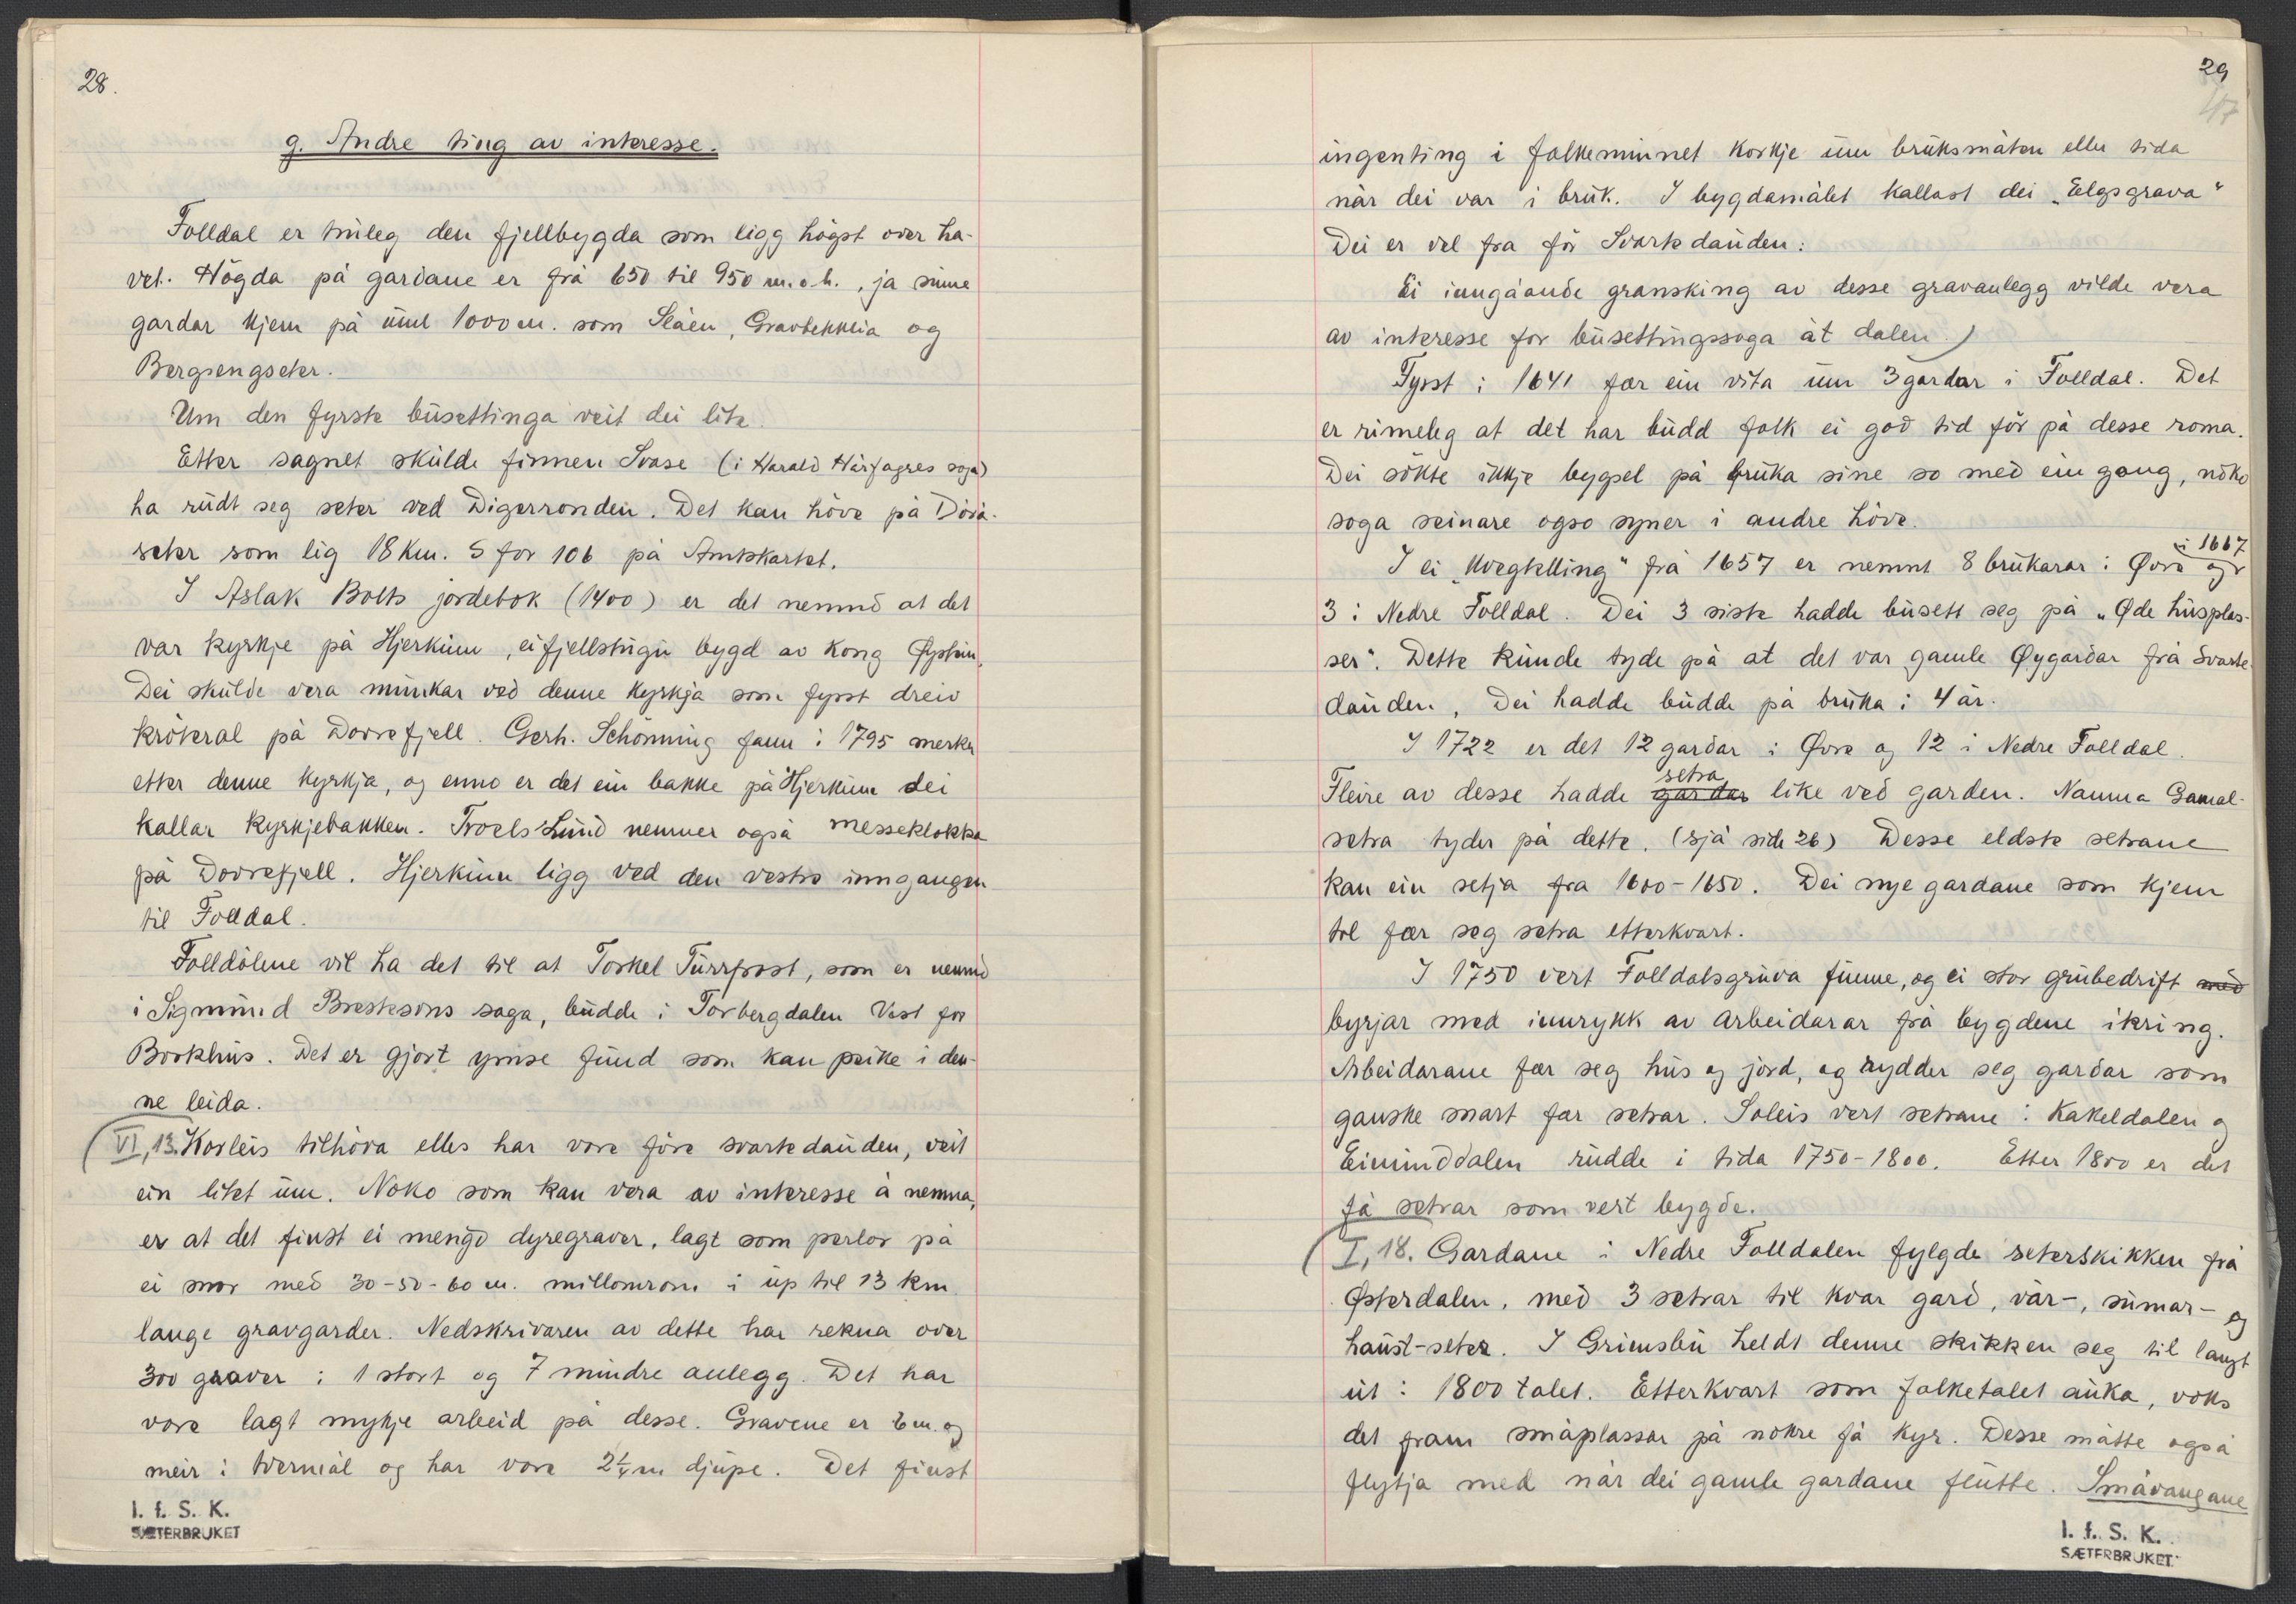 28.
g. Andre ting av interesse.
Folldal er truleg den fjellbygda som ligg högst over ha-
vet. Högda på gardane er frå 650 til 950 m.o.h., ja sume
gardar kjem på uml 1000 m. som Slåen, Gravbekklia og
Bergsengseter.
Um den fyrste busettinga veit dei lite.
Etter sagnet skulde finnen Svase (i Harald Hårfagres soga)
ha rudt seg seter ved Digerronden. Det kan höve på Döra-
seter som lig 18 km. S for 106 på Amtskartet.
I Aslak Bolts jordebok (1400) er det nemnd at det
var kyrkje på Hjerkinn, ei fjellstugu bygd av Kong Øystein,
Dei skulde vera munkar ved denne kyrkja som fyrst dreiv
kröteral på Dovrefjell. Gerh. Schönning fann i 1795 merker
etter denne kyrkja, og enno er det ein bakke på Hjerkinn dei
kallar kyrkjebakken. Troels Lund nemner også messeklokka
på Dovrefjell. Hjerkinn ligg ved den vestre inngangen
til Folldal.
Folldölene vil ha det til at Torkel Turrfrost, som er nemnd
i Sigmund Brestesons saga, budde i Torbergdalen Vest for
Borkhus. Det er gjort ymse fund som kan peike i den-
ne leida.
(VI, 13. Korleis tilhöva elles har vore före svartedauden, veit
ein litet um. Noko som kan vera av interesse å nemna,
er at det finst ei mengd dyregraver, lagt som perlor på
ei snor med 30-50-60 m. millomrom i up til 13 km
lange gravgarder. Nedskrivaren av dette har rekna over
300 graver i 1 stort og 7 mindre anlegg. Det har
vore lagt mykje arbeid på desse. Gravene er 6 m. og
meir i tvermål og har vore 2½ m djupe. Det finst
I. f. S. K.
SÆTERBRUKET
29
47
ingenting i folkeminnet korkje um bruksmåten eller tida
når dei var i bruk. I bygdamålet kallast dei „Elgsgrava“
Dei er vel fra för Svartedauden.
Ei inngåande gransking av desse gravanlegg vilde vera
av interesse for busettingssoga åt dalen.)
Fyrst i 1641 fær ein vita um 3 gardar i Folldal. Det
er rimeleg at det har budd folk ei god tid för på desse roma.
Dei sökte ikkje bygsel på bruka sine so med ein gong, noko
soga seinare ogso syner i andre höve.
I ei „Kvegtelling“ frå 1657 er nemnt 8 brukarar i Øvre og i 1667
3 i Nedre Folldal. Dei 3 siste hadde busett seg på „Øde husplas-
ser“. Dette kunde tyde på at det var gamle Øygardar frå Svarte-
dauden, Dei hadde budde på bruka i 4 år.
I 1722 er det 12 gardar i Øvre og 12 i Nedre Folldal.
Fleire av desse hadde gardar setra like ved garden. Namna Gamal-
setra tyder på dette. (sjå side 26) Desse eldste setrane
kan ein setja fra 1600-1650. Dei nye gardane som kjem
tel fær seg setra etterkvart.
I 1750 vert Folldalsgruva funne, og ei stor grubedrift med
byrjar med innrykk av arbeidarar frå bygdene ikring.
Arbeidarane fær seg hus og jord, og rydder seg gardar som
ganske snart fær setrar. Soleis vert setrane i Kakeldalen og
Einunddalen rudde i tida 1750-1800. Etter 1800 er det
få setrar som vert bygde.
(I, 18. Gardane i Nedre Folldalen fylgde seterskikken frå
Østerdalen, med 3 setrar til kvar gard, vår-, sumar- og
haust-seter. I Grimsbu heldt denne skikken seg til langt
ut i 1800 talet. Etterkvart som folketalet auka, voks
det fram småplassar på nokre få kyr. Desse måtte også
flytja med når dei gamle gardane flutte. Småvangane
I. f. S. K.
SÆTERBRUKET